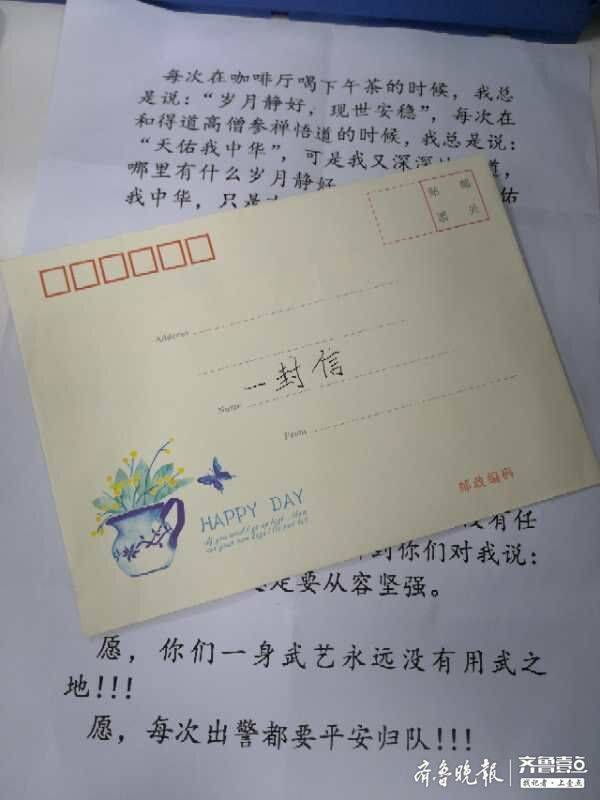 每次在咖啡厅喝下午茶的时候，我总
是说：“岁月静好，现世安稳”，每次在
和得道高僧参禅悟道的时候，我总是说：
“天佑我中华”，可是我又深深
哪里有什么岁月静好
我中华，只是
佑
邮票
Address
一封信
Name
From
邮政编码
HAPPY DAY
没有任
到你们对我说：
定要从容坚强。
愿，你们一身武艺永远没有用武之
地!!!
愿，每次出警都要平安归队!!!
齐鲁晚报
齐鲁壹点
找记者·上壹点